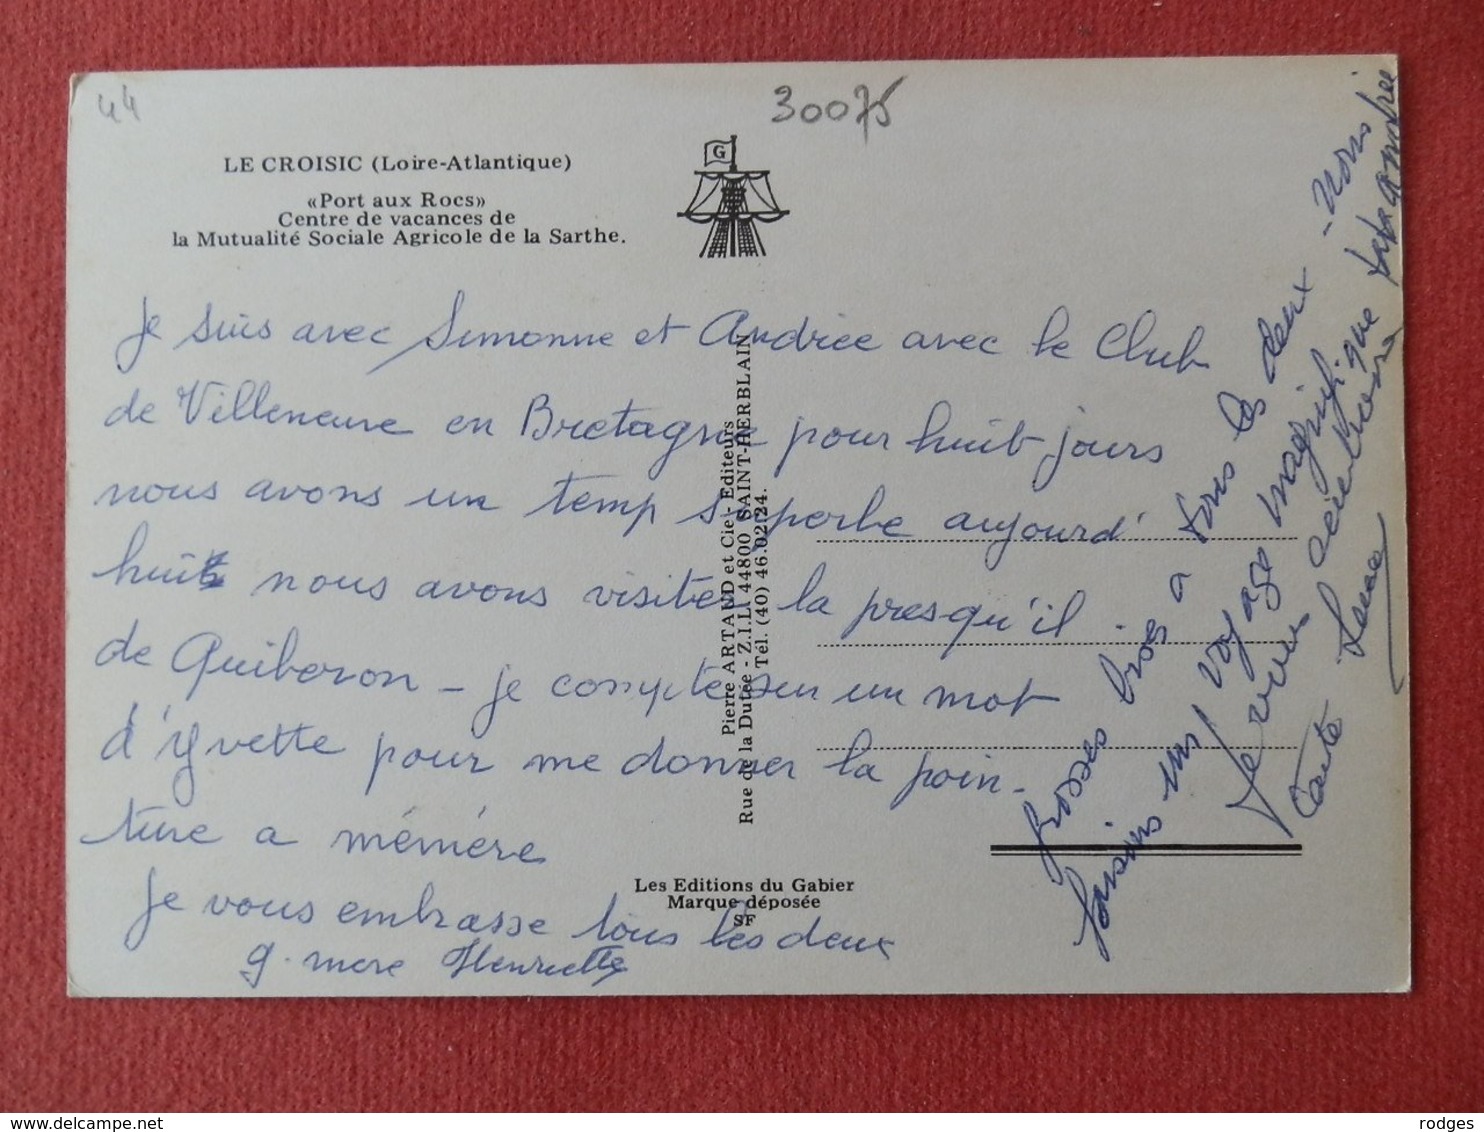 44
30075
G
LE CROISIC (Loire-Atlantique)
«Port aux Rocs»
Centre de vacances de
la Mutualité Sociale Agricole de la Sarthe.
Je suis avec Simonne et Andrée avec le Club
de Villeneuve en Bretagne pour huit jours
nous avons un temp superbe aujourd'
huit nous avons visiter la presqu'il
de Quiberon - je compte sur un mot
d'Yvette pour me donner la poin-
ture a mémére
je vous embrasse tous les deux
g. mere Henriette
Pierre ARTAUD et Cie - Editeurs
Rue de la Dutée - Z.I.L. 44800 SAINT-HERBLAIN
Tél. (40) 46.02.24.
Les Editions du Gabier
Marque déposée
SF
Grosses bises a tous les deux - Nous
faisons un voyage magnifique
Je vous
Tante
delcampe.net
rodges